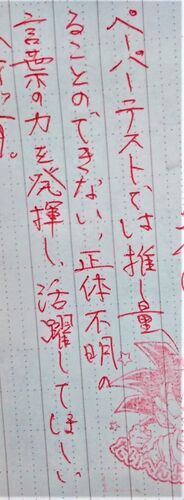 ペーパーテストでは推し量
ることのできない、正体不明の
言葉の力を発揮し、活躍してほしい
です。